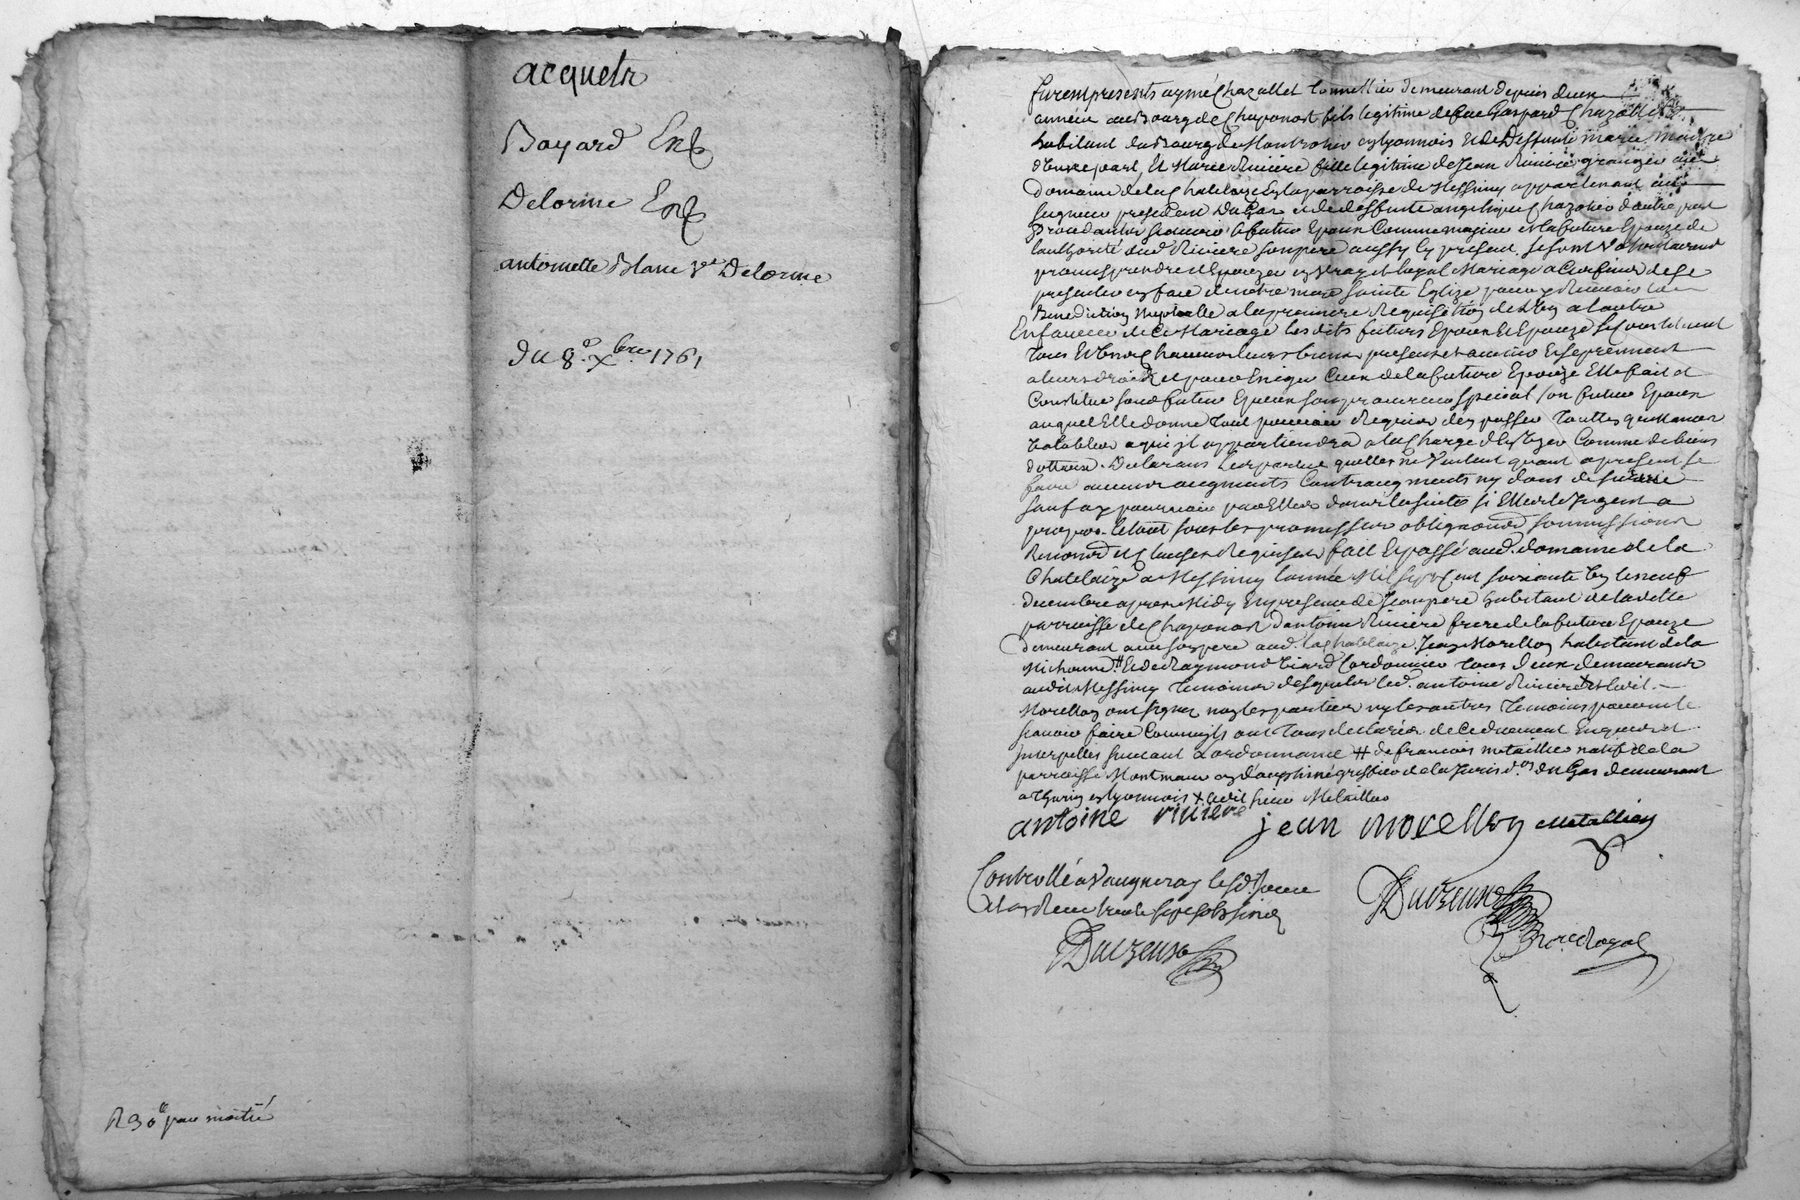 acquets
Bayard Enť
Delorme Enť
antoinette Blanc Vve Delorme
du 8e Xbre 1761
R 30 ll par moitié
furent presents aymé Chazottet Tonnellier demeurant depuis deux
années au Bourg de Chaponost fils legitime de feu Gaspard Chazottet
habitant du Bourg de Montrotier en lyonnois et de deffunte marie
d'une part, Et Marie Riviere fille legitime de Jean Riviere granger au
Domaine de la Chatelaize En la parroisse de Messimy appartenant au
seigneur president Dugas et de deffunte angelique Chazotier d'autre part
procedants sçavoir le futur Epoux Comme majeur et la future Epouze de
l'authorité dud. Riviere son pere aussy cy present. se sont volontairement
promis prendre et Epouzer en vray et loyal Mariage a Ces fins de se
presenter en face de notre mere sainte Eglize pour y Recevoir la
Benediction Nuptialle a la premiere Requisition de l'un a l'autre
En faveur de Ce Mariage les dits futurs Epoux Et Epouze se Constituent
tous Et Un Chacuns leurs biens presents et avenir Et se prennent
a leurs droits et pour Exiger Ceux de la future Epouze Elle fait et
Constitue son futur Epoux son procureur special son futur Epoux
auquel Elle donne tout pouvoir Requis d'en passer touttes quittances
valables a qui il appartiendra a la Charge d'En Uzer Comme de biens
dottaux. Declarans les parties quelles ne Veulent quant a present se
faire aucuns augments Contraugments ny dons de survie
sauf a y pourvoir par Elles dans la suite si Elles le Jugent a
propos. le tout sous les promesses obligaõns soumissions
Renonaõns et Clauses Requises fait Et passé aud. domaine de la
Chatelaize a Messimy l'année Mil sept Cent soixante Un le neuf
decembre apres Midy En presence de Jean pere habitant de ladite
parroisse de Chaponost d'antoine Riviere frere de la future Epouze
demeurant avec son pere aud. la Chatelaize. Jean Morellon habitant de la
# Et de Raymond Cordonnier tous deux demeurants
audit Messimy temoins desquels led. antoine Riviere + Et led.
Morellon ont signez non les parties ny les autres temoins pour ne le
sçavoir faire Comme ils ont tous declarés de Ce duement Enquis et
interpellés suivant l'ordonnance # de francois metaillier natif de la
parroisse Montmain en dauphiné greffier de la Jurisd.on du Gas demeurant
a Thurin en lyonnois + ledit sieur Metaillier
antoine riviere jean morellon Metallier
Controllé a Vaugneray le sd. Jour
Et an Receu trente sept sols six d.
Ducreux
Ducreux
Nore Royal